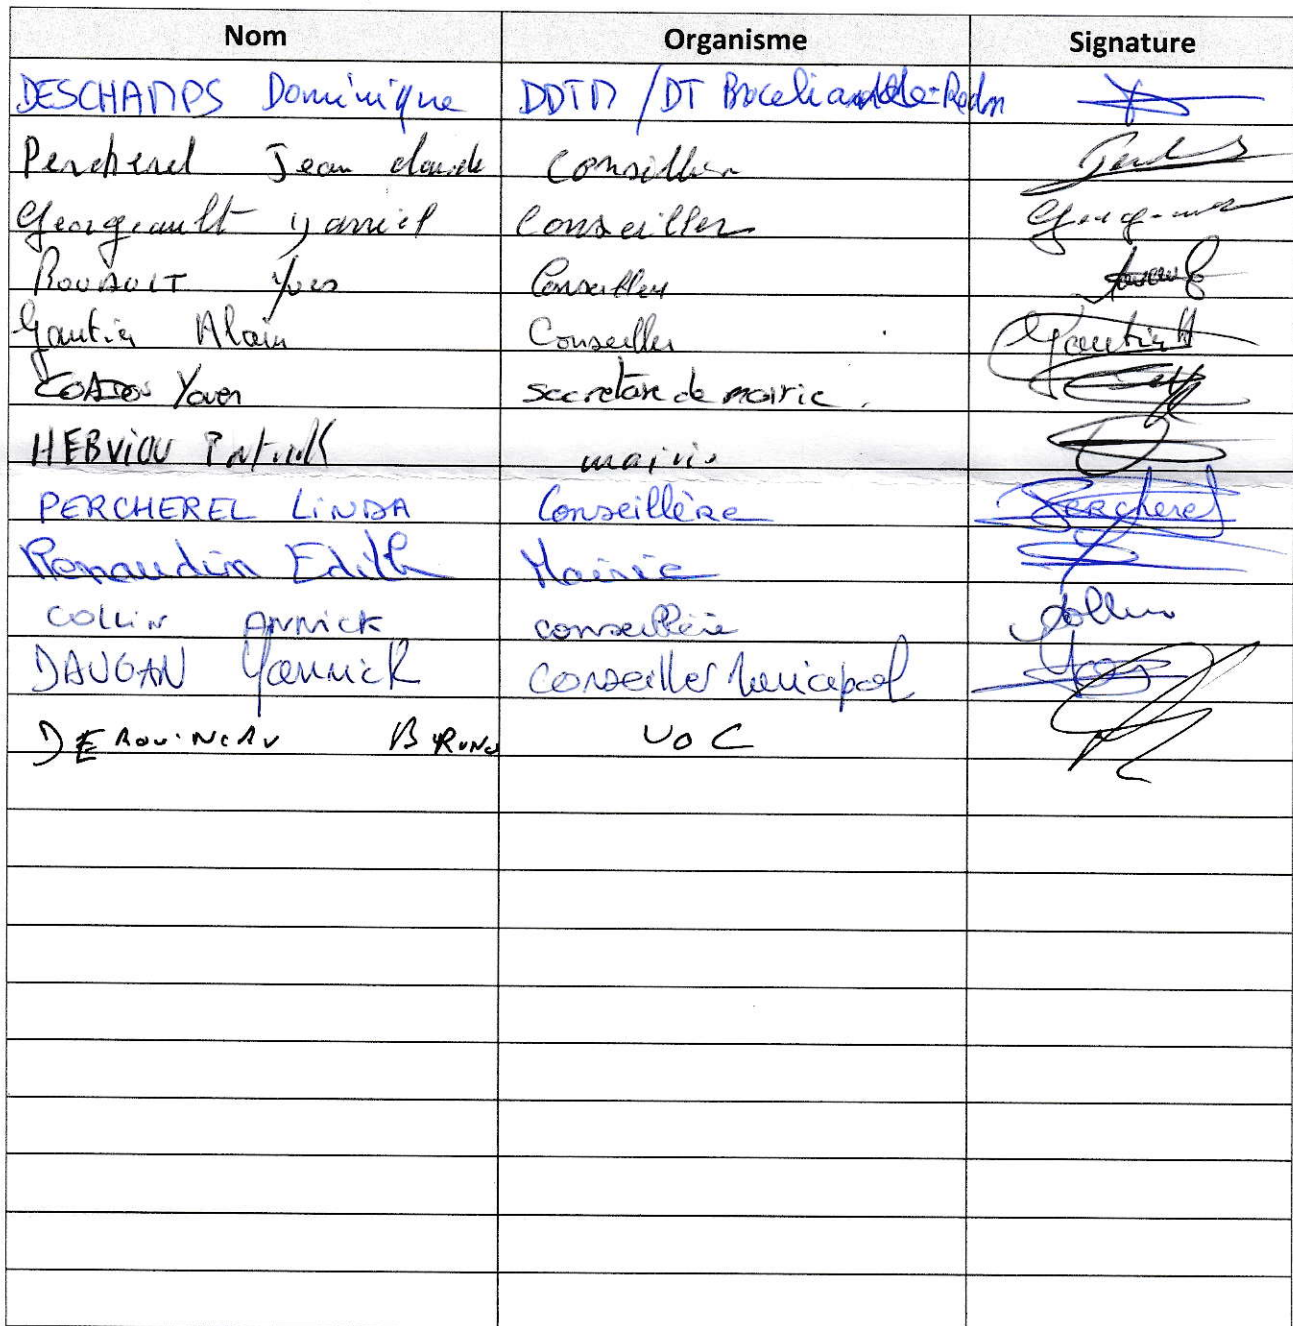 Nom Organisme Signature
DESCHAMPS Dominique DDTM / DT Broceliande-Redon
Percherel Jean claude Conseiller
Georgeault yaniel Conseiller
ROUAULT Yves Conseiller
Gautier Alain Conseiller Gautier A
Yoven secretaire de mairie.
HERVIOU Patrick mairie
PERCHEREL LINDA Conseillère Percherel
Renaudin Edith Mairie
COLLIN ANNICK conseillère Collin
DAUGAN Yannick Conseiller Municipal
BRUNO VOC